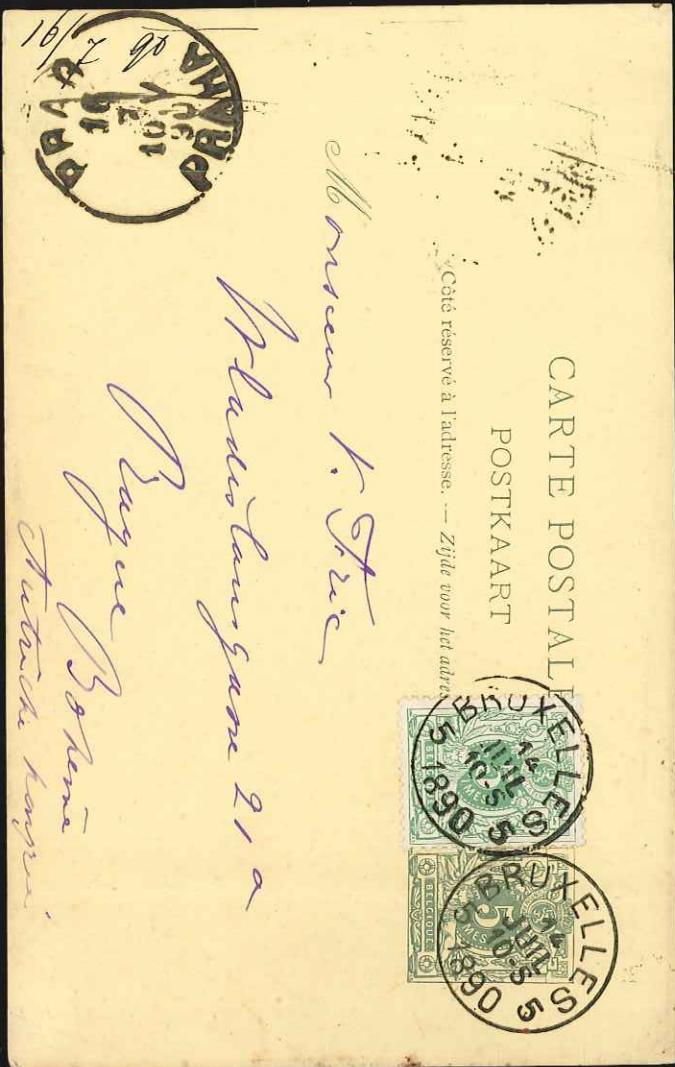 CARTE POSTALE
POSTKAART
Côté réservé à l'adresse. — Zijde voor het adres
BRUXELLES 5
14
JUIL
10-S
1890
BRUXELLES 5
14
JUIL
10-S
5 1890 5
BELGIQUE
5
Monsieur V. Fric
Wladislawsgasse 21a
Prague Bohême
Autriche
16/7 90
PRAG PRAHA
16
7
10 V
90